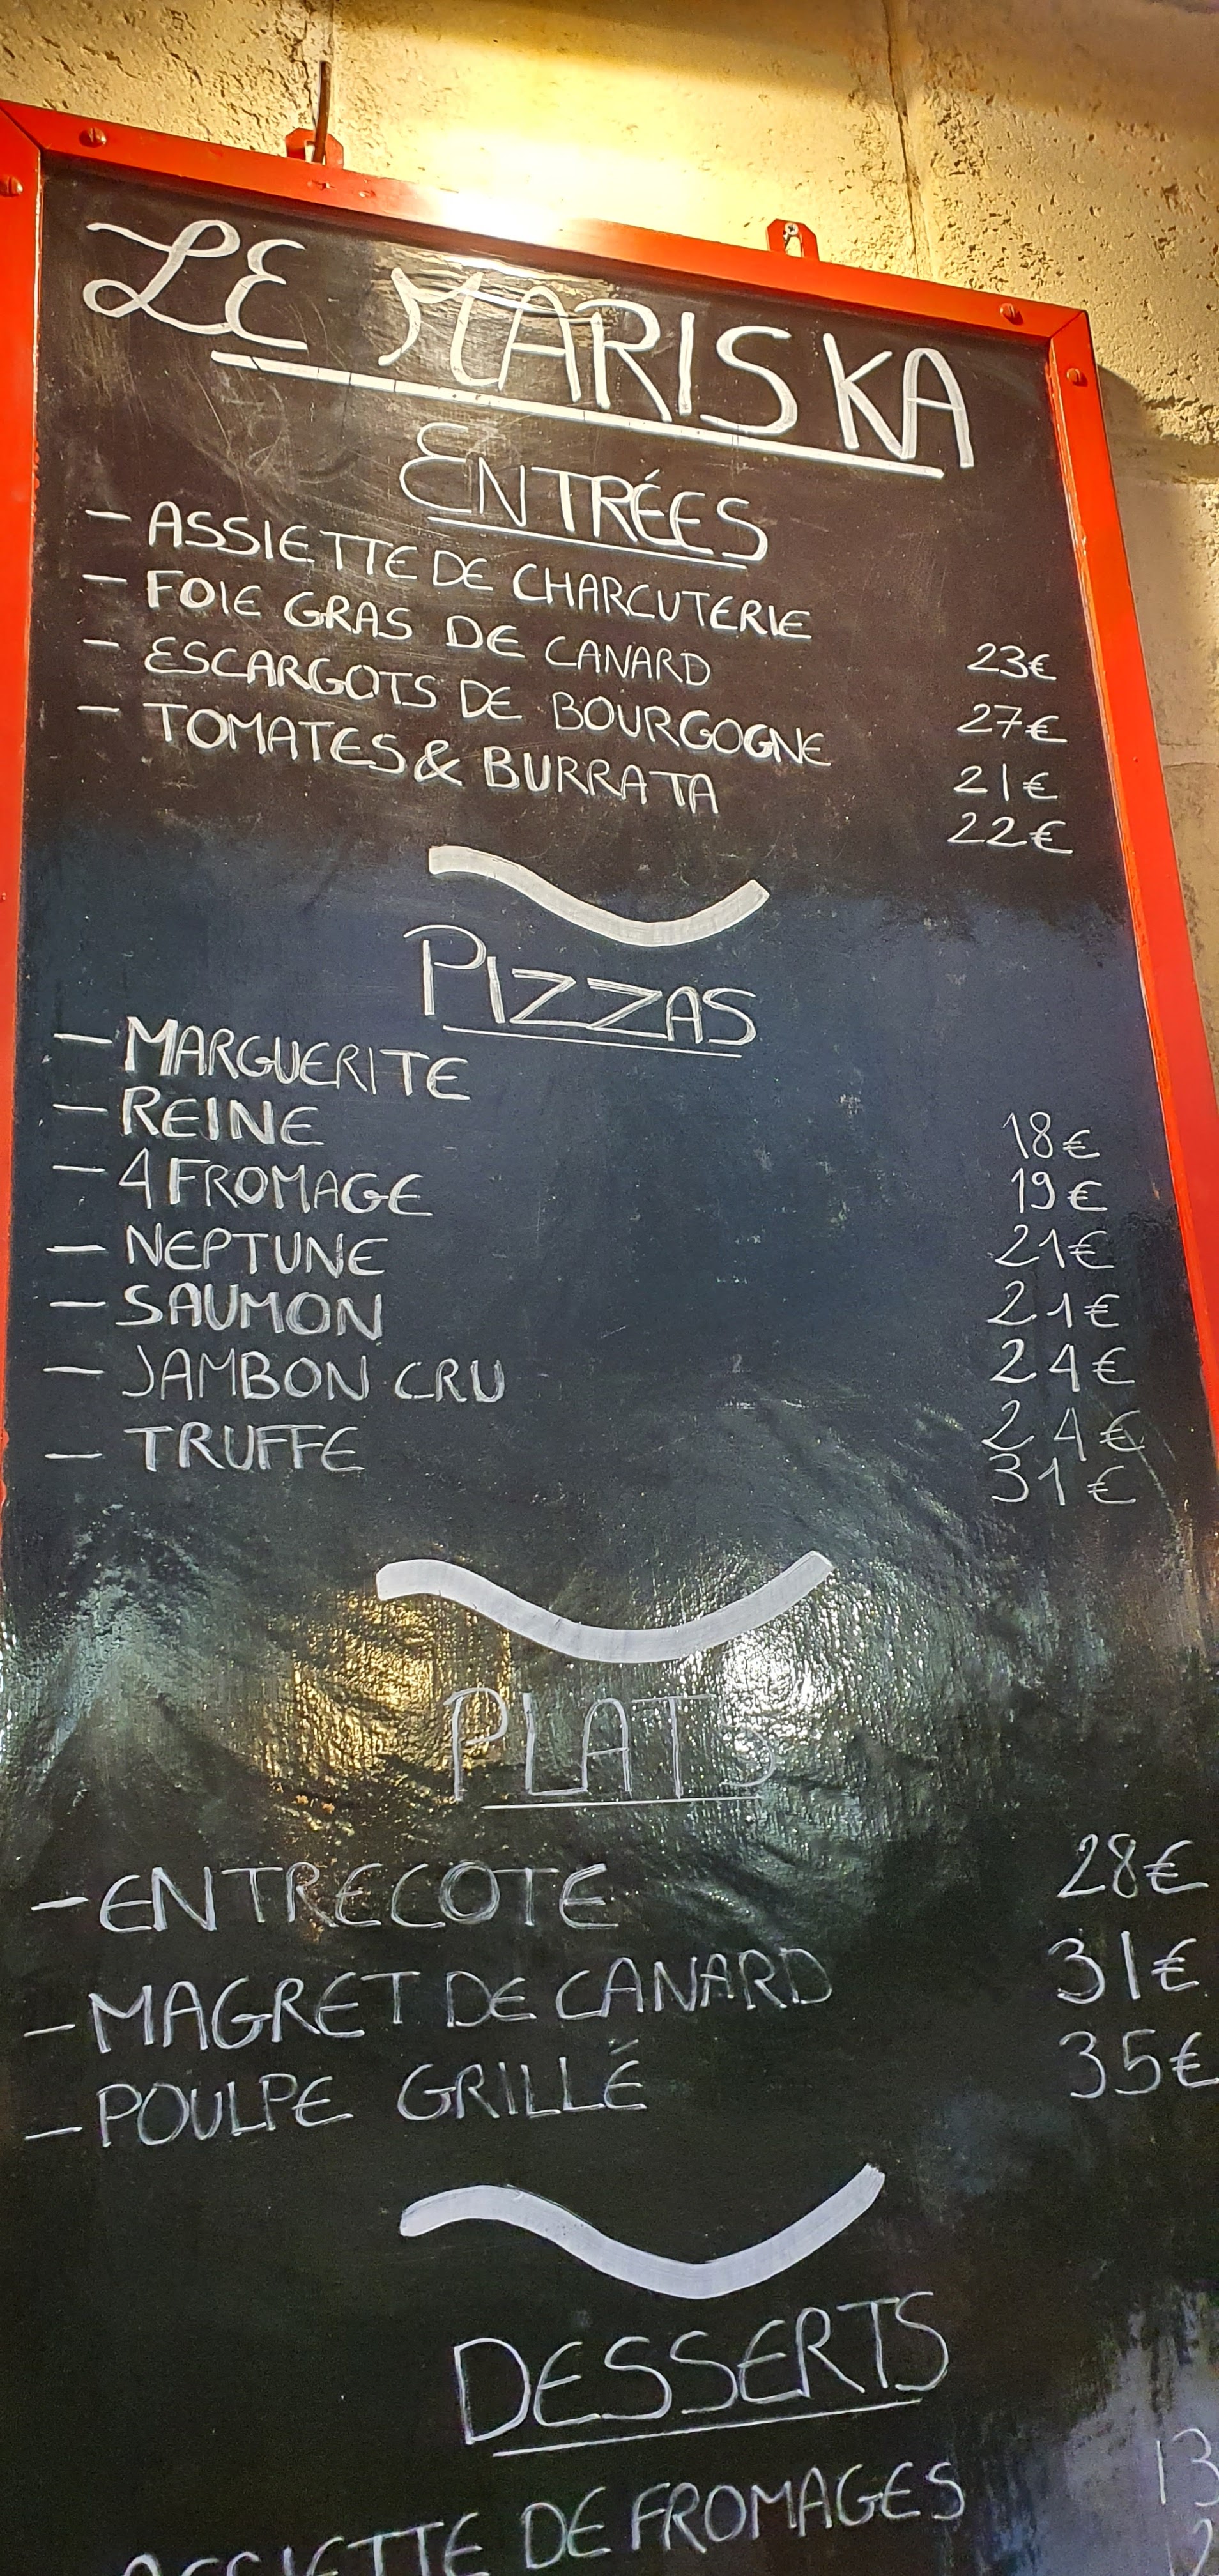 LE MARISKA
ENTRÉES
- ASSIETTE DE CHARCUTERIE 23€
- FOIE GRAS DE CANARD 27€
- ESCARGOTS DE BOURGOGNE 21€
- TOMATES & BURRATA 22€
PIZZAS
- MARGUERITE 18€
- REINE 19€
- 4 FROMAGE 21€
- NEPTUNE 21€
- SAUMON 24€
- JAMBON CRU 24€
- TRUFFE 31€
PLATS
- ENTRECOTE 28€
- MAGRET DE CANARD 31€
- POULPE GRILLÉ 35€
DESSERTS
ASSIETTE DE FROMAGES 13